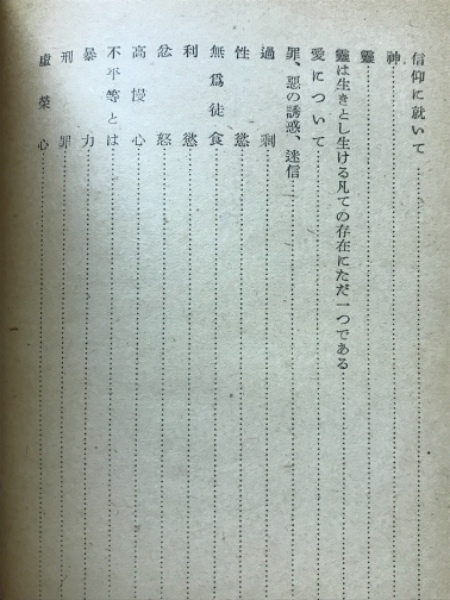 信仰に就いて
神
靈
靈は生きとし生ける凡ての存在にただ一つである
愛について
罪、惡の誘惑、迷信
過剩
性慾
無爲徒食
利慾
忿怒
高慢心
不平等とは
暴力
刑罪
虛榮心